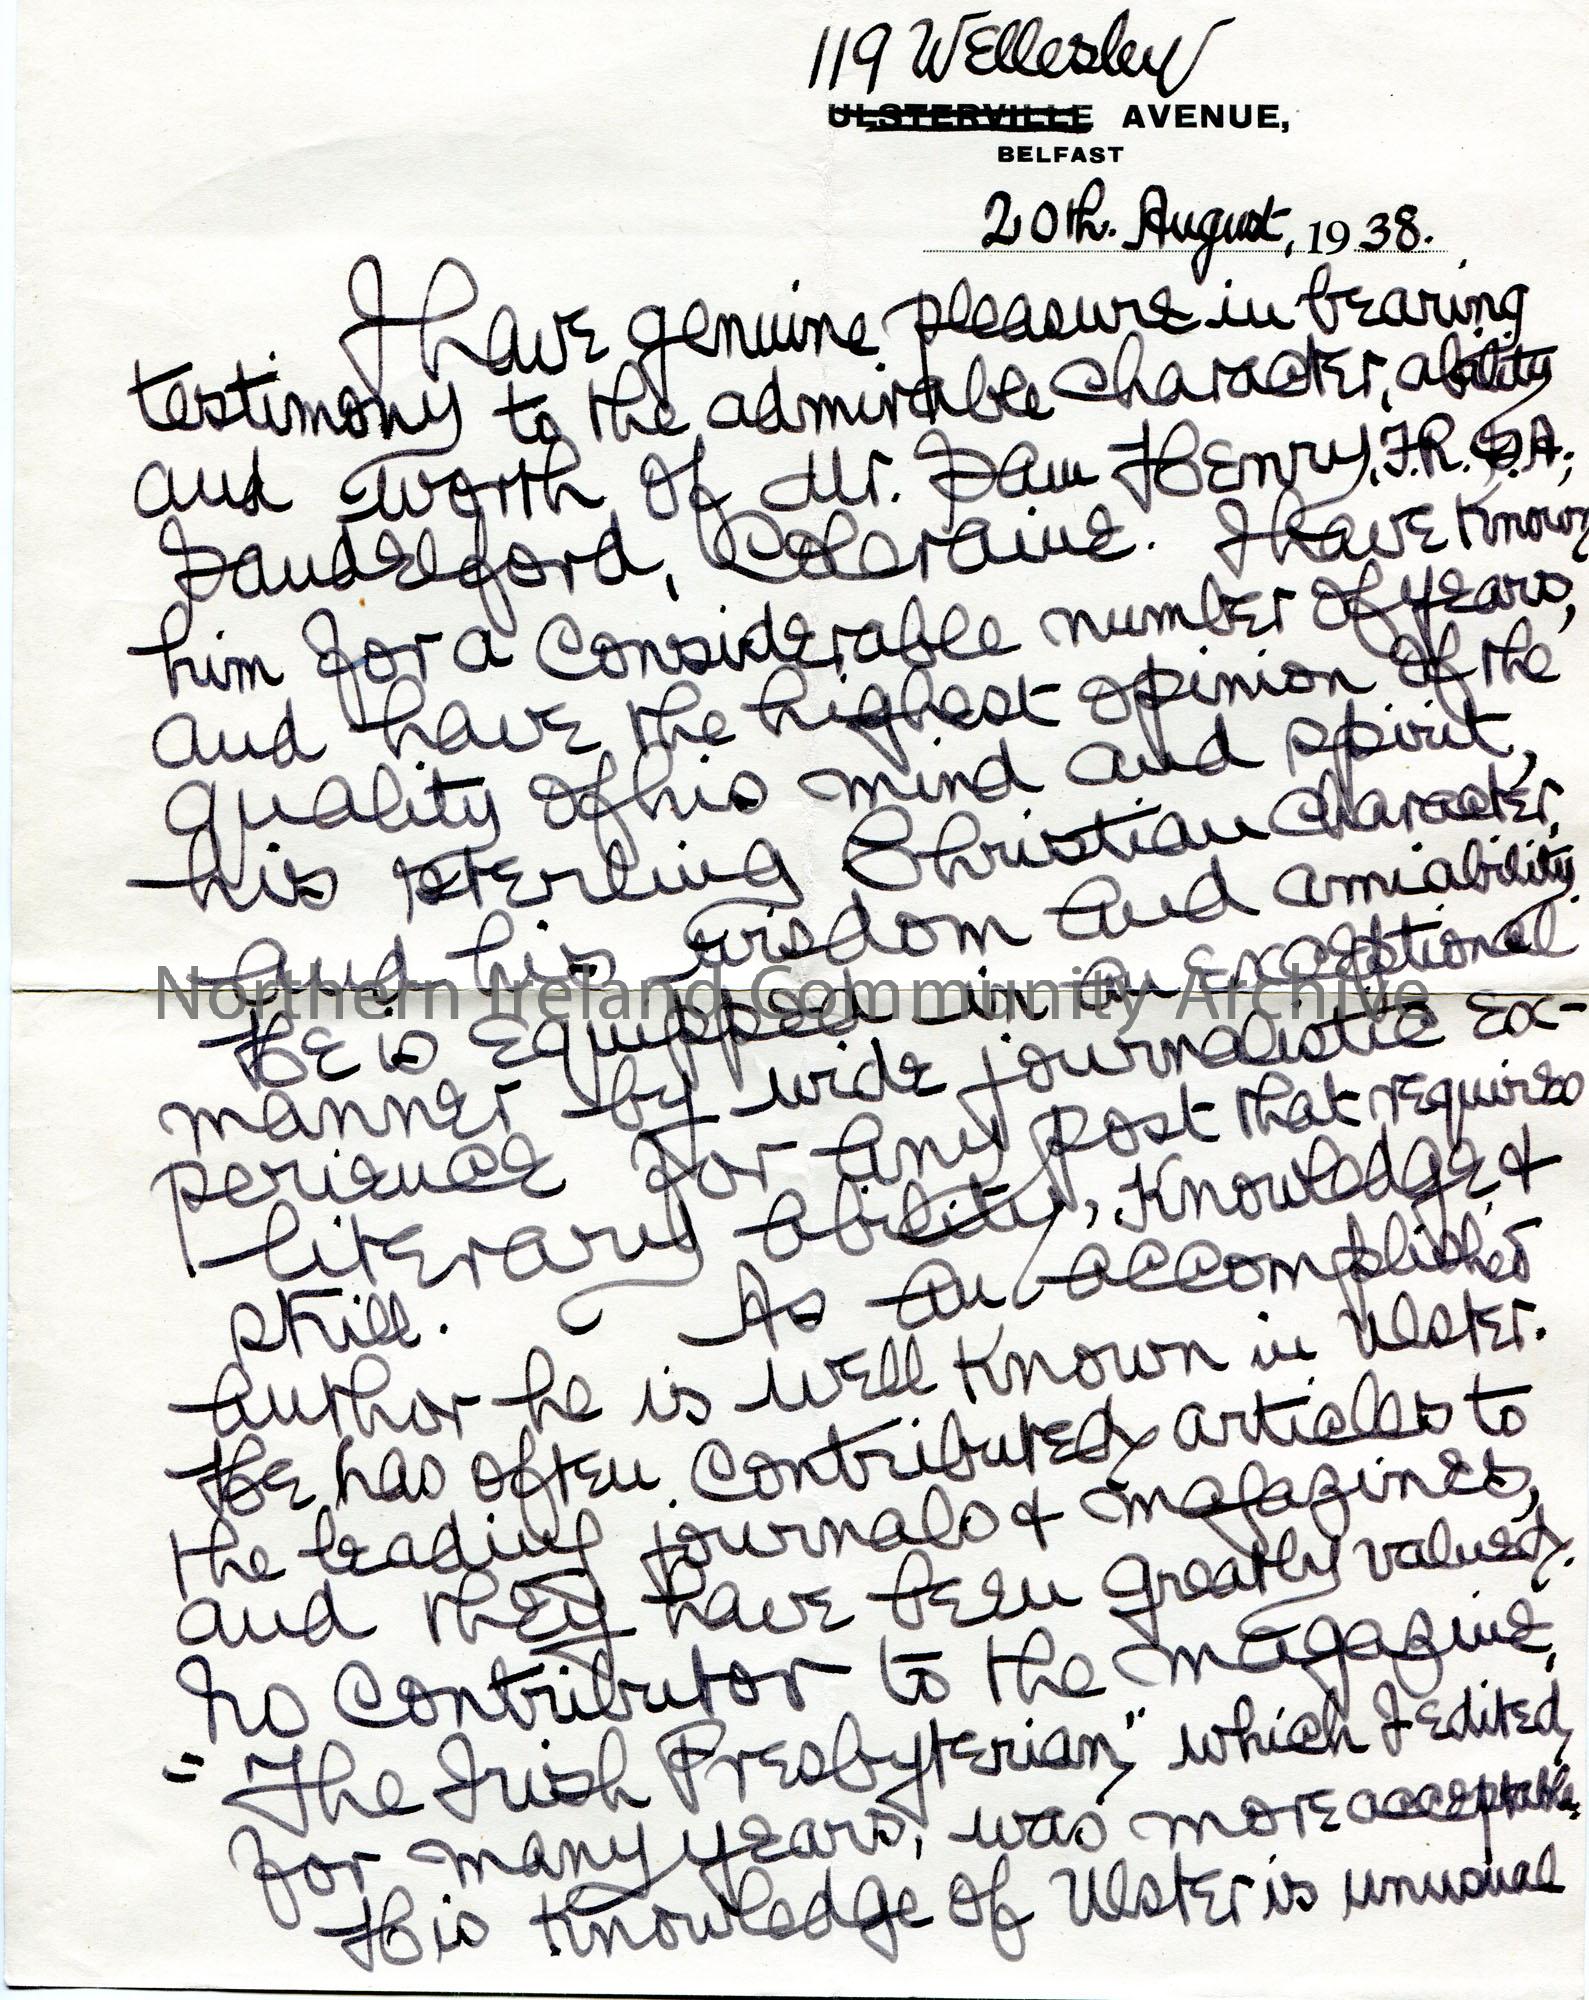 119 Wellesley
ULSTERVILLE AVENUE,
BELFAST
20th. August, 1938.
I have genuine pleasure in bearing
testimony to the admirable character, ability
and worth of Mr. Sam Henry, F.R.S.A.,
Sandelford, Coleraine. I have known
him for a considerable number of years,
and have the highest opinion of the
quality of his mind and spirit,
his sterling Christian character,
and his wisdom and amiability.
Northern Ireland Community Archive
He is equipped in an exceptional
manner by wide journalistic ex-
perience for any post that requires
literary ability, knowledge, &
skill. As an accomplished
author he is well known in Ulster.
He has often contributed articles to
the leading journals & magazines,
and they have been greatly valued.
No contributor to the magazine,
"The Irish Presbyterian," which I edited,
for many years, was more acceptable.
His knowledge of Ulster is unusual